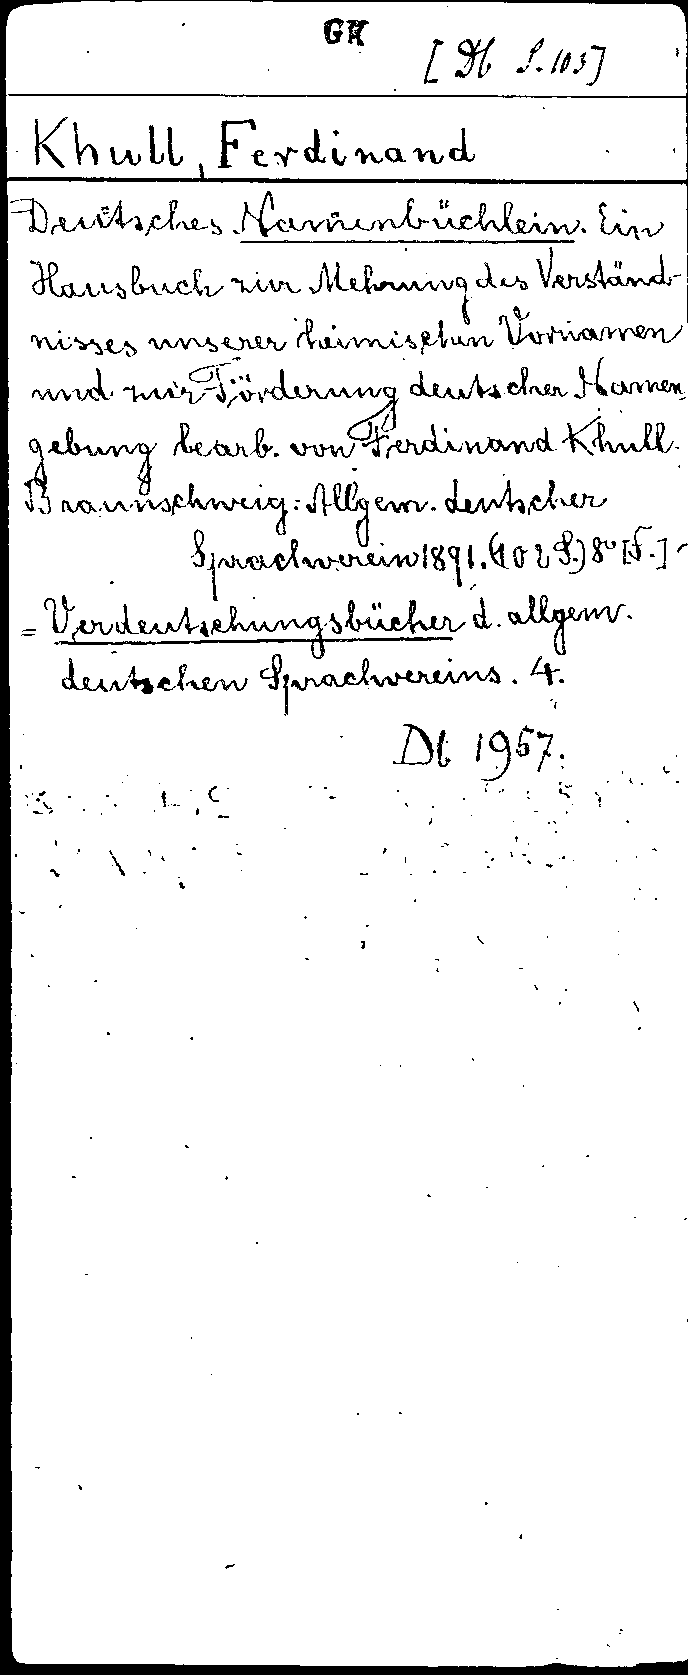 GH
[Db S. 105]
Khull, Ferdinand
Deutsches Namenbüchlein. Ein
Hausbuch zur Mehrung des Verständ-
nisses unserer heimischen Vornamen
und zur Förderung deutscher Namen-
gebung bearb. von Ferdinand Khull.
Braunschweig: Allgem. deutscher
Sprachverein 1891. (102 S.) 8° [F.]
= Verdeutschungsbücher d. allgem.
deutschen Sprachvereins. 4.
Db 1957.